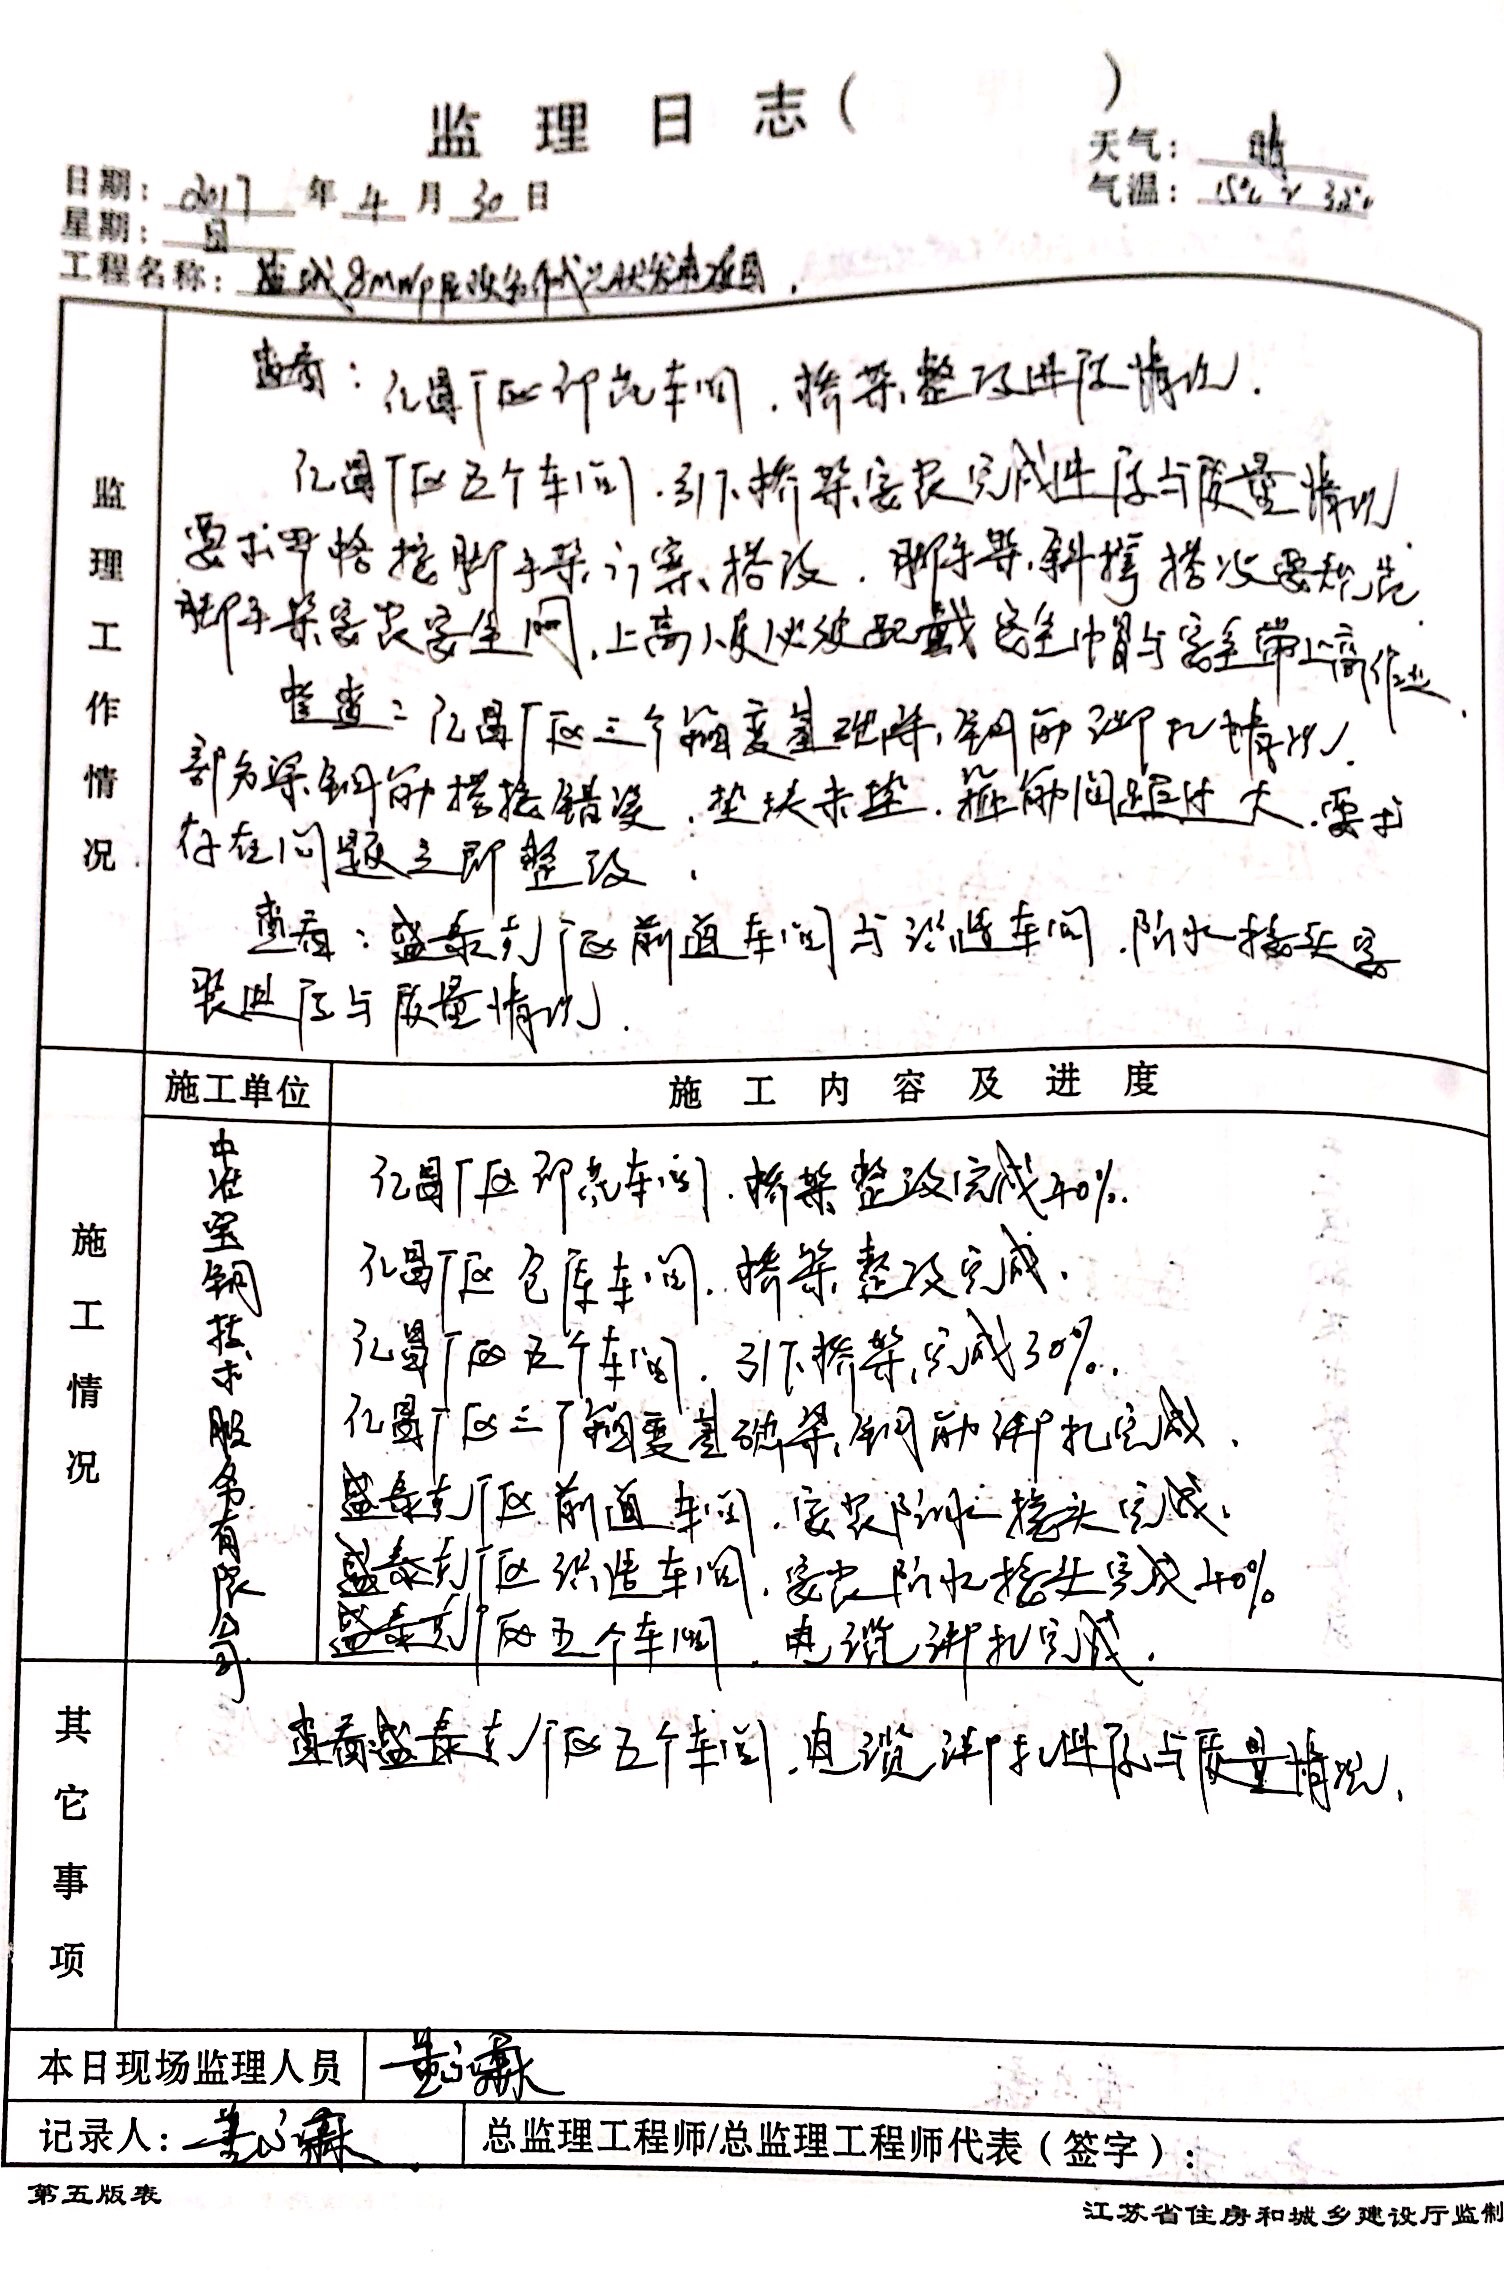 监理日志（　　　）
天气：晴
日期：2017年4月30日
气温：15℃～32℃
星期：日
工程名称：盐城8MWp屋顶分布式光伏发电项目.
监理工作情况
查看：亿昌厂区印花车间.桥架整改进度情况.
亿昌厂区五个车间.引下桥架安装完成进度与质量情况
要求严格按脚手架方案搭设.脚手架斜撑搭设要规范.
脚手架安装安全网.上高人员必须配戴安全帽与安全带上高作业.
检查：亿昌厂区三个箱变基础梁钢筋绑扎情况.
部分梁钢筋搭接错误.垫块未垫.箍筋间距过大.要求
存在问题立即整改.
查看：盛泰克厂区前道车间与织造车间.防水接头安
装进度与质量情况.
施工单位
施工内容及进度
施工情况
中淮宝钢技术股份有限公司
亿昌厂区印花车间.桥架整改完成40%.
亿昌厂区仓库车间.桥架整改完成.
亿昌厂区五个车间.引下桥架完成30%.
亿昌厂区三个箱变基础梁钢筋绑扎完成.
盛泰克厂区前道车间.安装防水接头完成.
盛泰克厂区织造车间.安装防水接头完成40%
盛泰克厂区五个车间.电缆绑扎完成.
其它事项
查看盛泰克厂区五个车间.电缆绑扎进度与质量情况.
本日现场监理人员
记录人：
总监理工程师/总监理工程师代表（签字）：
第五版表
江苏省住房和城乡建设厅监制